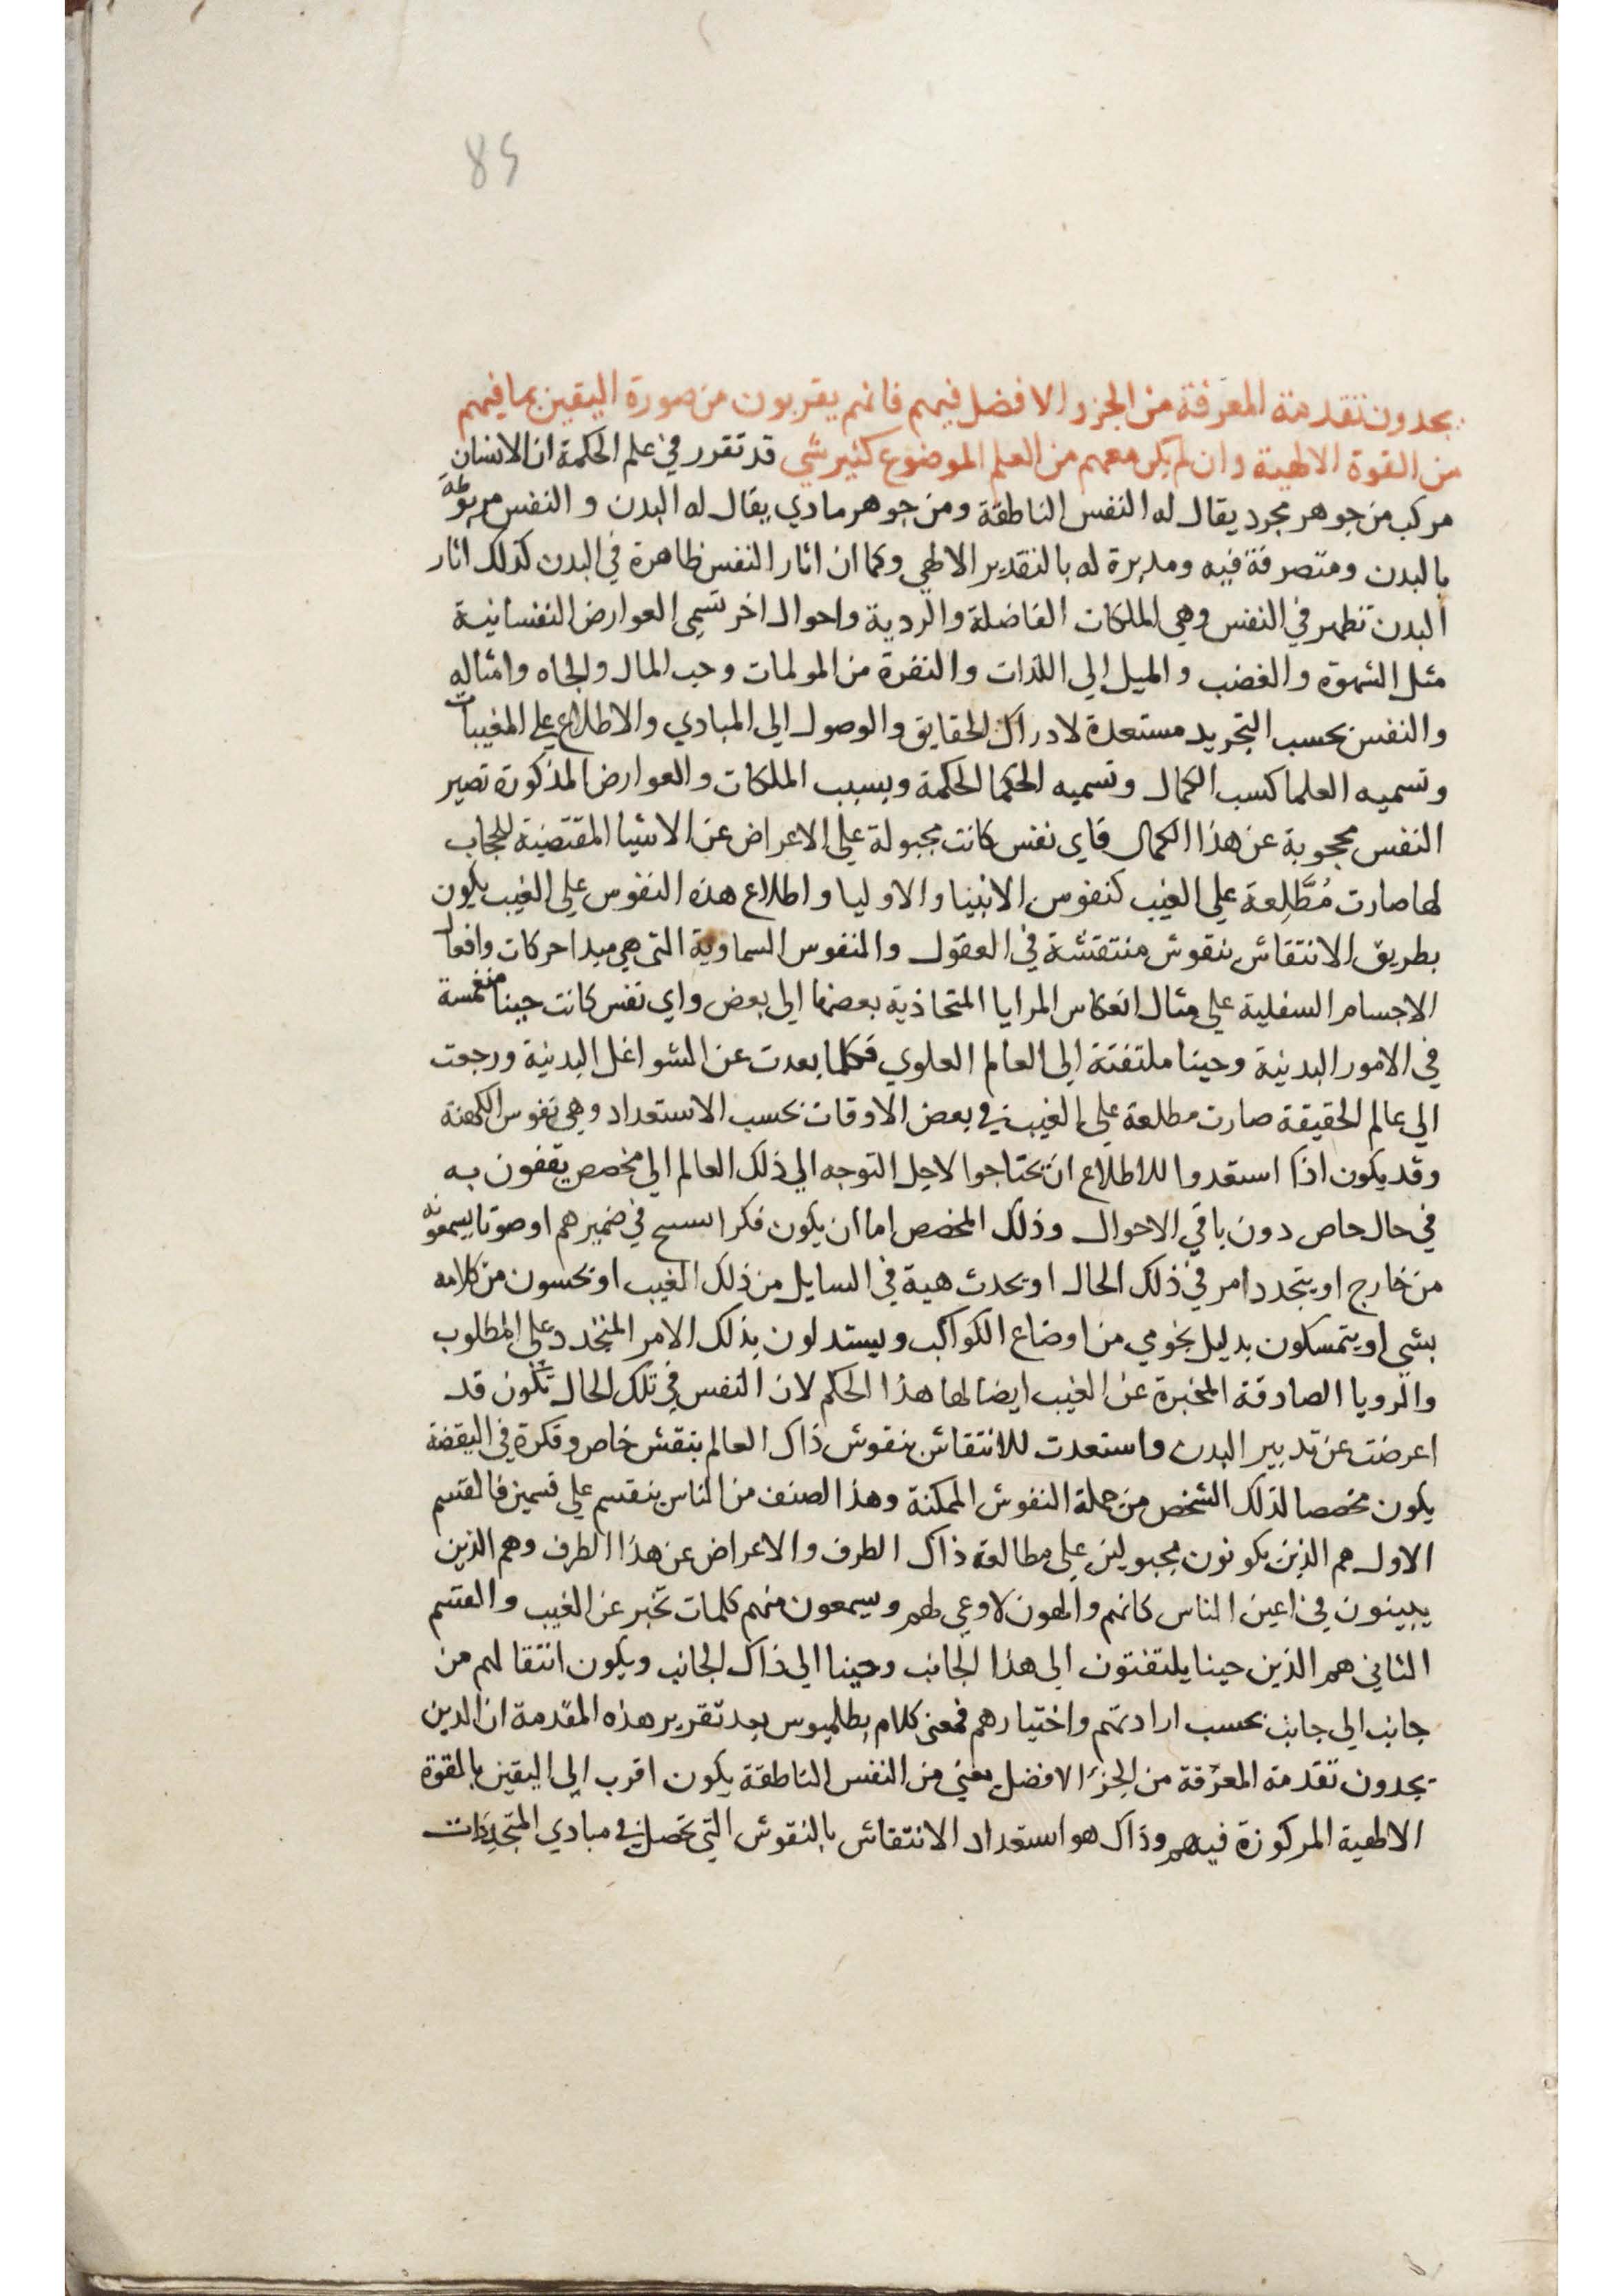 85
يجدون تقدمة المعرفة من الجزء الافضل فيهم فانهم يقربون من صورة اليقين بما فيهم
من القوة الالهية وان لم يكن معهم من العلم الموضوع كثير شي قد تقرر في علم الحكمة ان الانسان
مركب من جوهر مجرد يقال له النفس الناطقة ومن جوهر مادي يقال له البدن و النفس مربوطة
بالبدن ومتصرفة فيه ومدبرة له بالتقدير الالهي وكما ان اثار النفس ظاهرة في البدن كذلك اثار
البدن تظهر في النفس وهي الملكات الفاضلة والردية واحوال اخر تسمى العوارض النفسانية
مثل الشهوة والغضب والميل الي اللذات والنفرة من المولمات وحب المال والجاه وامثاله
والنفس بحسب التجريد مستعدة لادراك الحقايق والوصول الي المبادي والاطلاع علي المغيبات
وتسميه العلما كسب الكمال وتسميه الحكما الحكمة وبسبب الملكات والعوارض المذكورة تصير
النفس محجوبة عن هذا الكمال فاي نفس كانت مجبولة علي الاعراض عن الاشيا المقتضية للحجاب
لها صارت مُطَّلِعة علي الغيب كنفوس الانبيا والاوليا واطلاع هذه النفوس علي الغيب يكون
بطريق الانتقاش بنقوش منتقشة في العقول والنفوس السماوية التي هي مبدا حركات وافعال
الاجسام السفلية علي مثال انعكاس المرايا المتحاذية بعضها الي بعض واي نفس كانت حينا منغمسة
في الامور البدنية وحينا ملتفتة الي العالم العلوي فكلما بعدت عن الشواغل البدنية ورجعت
الي عالم الحقيقة صارت مطلعة علي الغيب في بعض الاوقات بحسب الاستعداد وهي نفوس الكهنة
وقد يكون اذا استعدوا للاطلاع ان يحتاجوا لاجل التوجه الي ذلك العالم الي مخصص يقفون به
في حال خاص دون باقي الاحوال وذلك المخصص اما ان يكون فكرا يسنح في ضميرهم او صوتا يسمعونه
من خارج او يتجدد امر في ذلك الحال او يحدث هية في السايل من ذلك الغيب او يحسون من كلامه
بشي او يتمسكون بدليل نجومي من اوضاع الكواكب ويستدلون بذلك الامر المتجدد علي المطلوب
والرويا الصادقة المخبرة عن الغيب ايضا لها هذا الحكم لان النفس في تلك الحال تكون قد
اعرضت عن تدبير البدن واستعدت للانتقاش بنقوش ذاك العالم بنقش خاص وفكرة في اليقضة
يكون مخصصا لذلك الشخص من جملة النفوش الممكنة وهذا الصنف من الناس ينقسم علي قسمين فالقسم
الاول هم الذين يكونون مجبولين علي مطالعة ذاك الطرف والاعراض عن هذا الطرف وهم الذين
يبينون في اعين الناس كانهم والهون لا وعي لهم ويسمعون منهم كلمات تخبر عن الغيب والقسم
الثاني هم الذين حينا يلتفتون الي هذا الجانب وحينا الي ذاك الجانب ويكون انتقالهم من
جانب الي جانب بحسب ارادتهم واختيارهم فمعني كلام بطلميوس بعد تقرير هذه المقدمة ان الذين
يجدون تقدمة المعرفة من الجزء الافضل يعني من النفس الناطقة يكون اقرب الي اليقين بالقوة
الالهية المركوزة فيهم وذاك هو استعداد الانتقاش بالنقوش التي تحصل في مبادي المتجددات